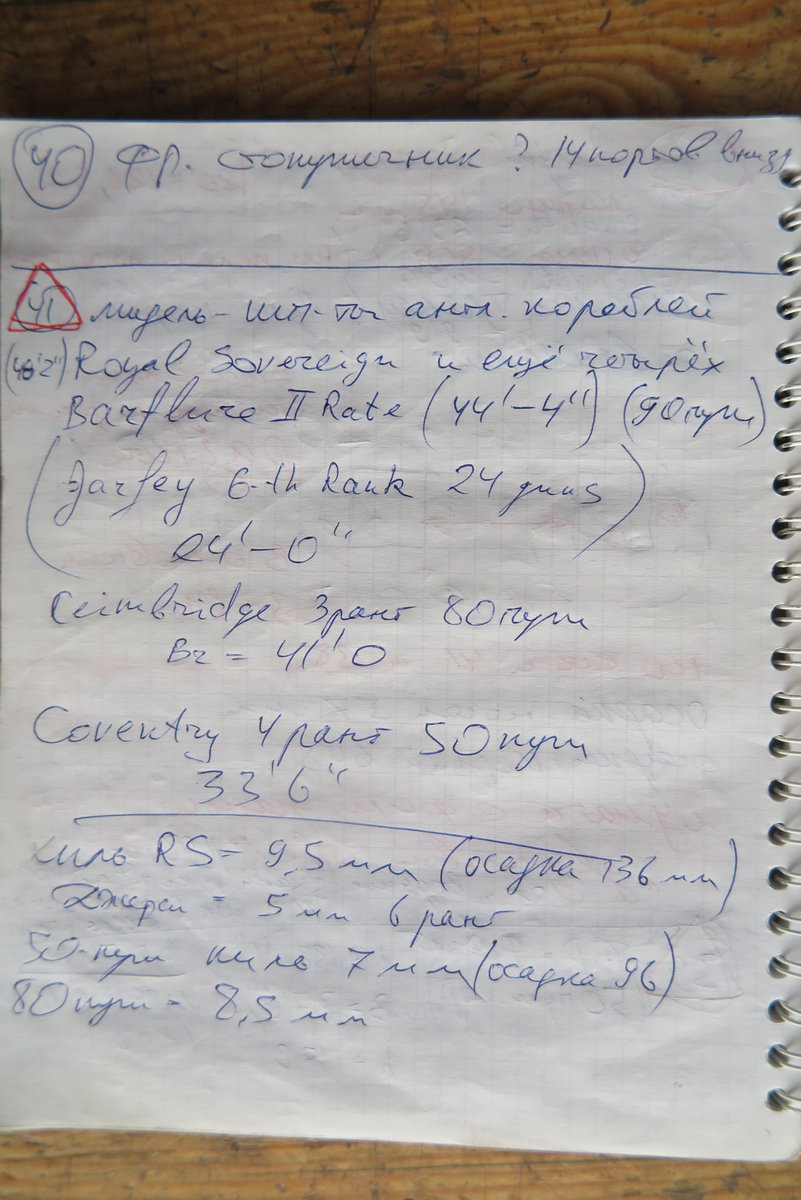 40 Фр. стопушечник ? 14 портов внизу
41 мидель-шп-ты англ. кораблей
(48'2") Royal Sovereign и ещё четырёх
Barflure II Rate (44'-4") (90 пуш)
(Jarsey 6-th Rank 24 guns
24'-0")
Ceimbridge 3 ранг 80 пуш
Br = 41' 0
Coventry 4 ранг 50 пуш
33'6"
киль RS = 9,5 мм (осадка 136 мм)
Джерси = 5 мм 6 ранг
50-пуш киль 7 мм (осадка 96)
80 пуш - 8,5 мм